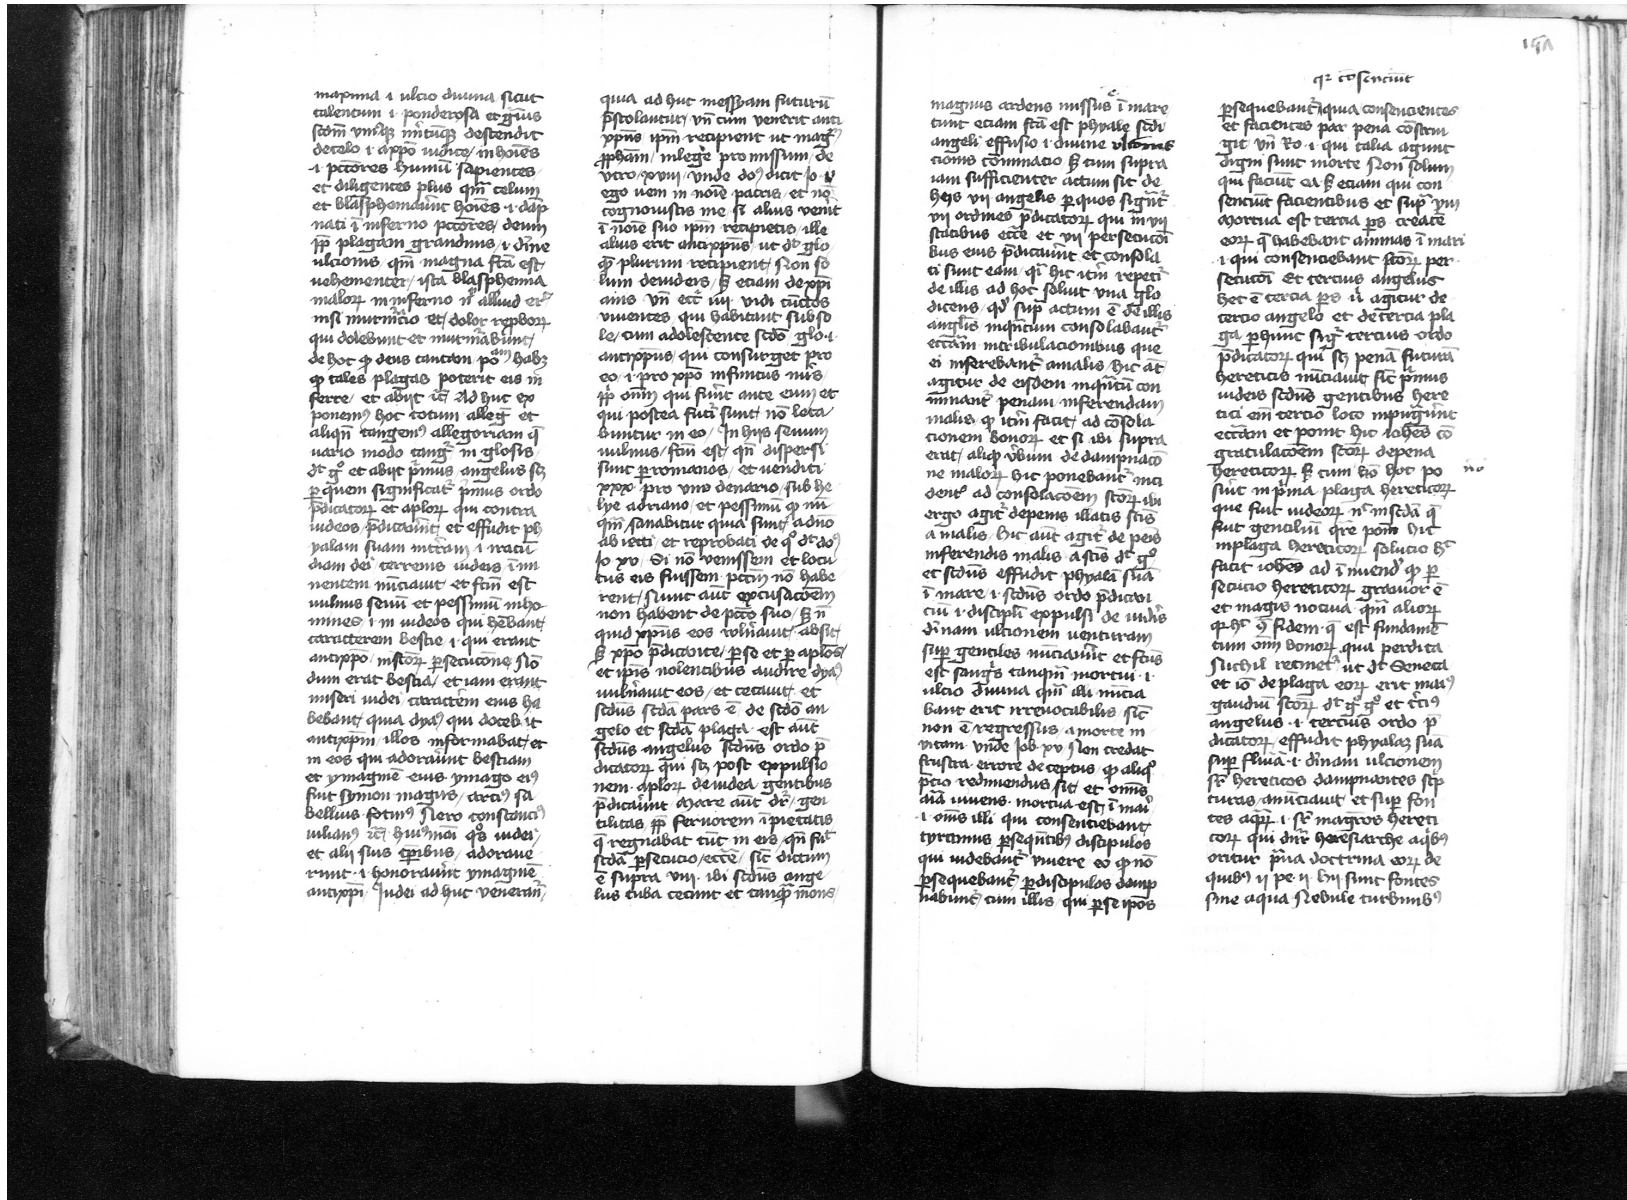 maxima .i. ulcio divina sicut
talentum .i. ponderosa et gravis
scdm vniuscuiusque meritum descendit
de celo .i. a xpo iudice / in hoies
.i. pctores humum sapientes
et diligentes plus qm celum
et blasphemaverunt hoies .i. damp
nati ī inferno pctores / deum
ppt plagam grandinis / .i. divine
ulcionis / qm magna fca est
vehementer / ista blasphemia
malorum in inferno nl aliud erit
nisi murmuracio et dolor reprobor
qui dolebunt et murmurabunt /
de hoc q deus tantam potam habz
q tales plagas poterit eis in
ferre / et abiit &c Ad huc ex
ponemus hoc totum alleg et
aliqn tangemus allegoriam q
vario modo tangit in glosis /
dt go et abiit primus angelus sz
per quem significatur primus ordo
predicatorum et aplorum qui contra
iudeos / predicaverunt / et effudit ph
yalam suam in terram .i. iracun
diam dei terrenis iudeis imi
nentem nunciavit et fcm est
vulnus sevum et pessimum in ho
mines .i. in iudeos qui hebant
caracterem bestie .i. qui erant
antixpo / in scorum persecutione Non
dum erat bestia / et iam erant
miseri iudei / caracterem eius ha
bebant / quia dyabolus qui docebit
antixpm / illos informabat / et
in eos qui adoraverunt bestiam
et ymaginem eius ymago eius
fuit symon magus / arrius sa
bellius fotinus Nero constancius
iulianus &c / huiusmodi quos iudei /
et alii suis temporibus / adorave
runt .i. honoraverunt ymaginem
antixpi / Iudei ad huc venerantur
quia ad huc messyam futurum
prestolantur / vn cum venerit anti
xpus ipm recipient ut magnum
propham / in lege promissum / de
utro xviii / unde dominus dicit Io v
ego veni in noie patris / et non
cognovistis me si alius venerit
ī noie suo ipm recipietis / ille
alius erit antixpus ut dt glo
quem plurimi recipient / Non so
lum de iudeis / sed eciam de xpi
anis vn eccl iiii vidi cunctos
viventes qui habitant sub so
le / cum adolescente scdo glo .i.
antixpus / qui consurget pro
eo / .i. pro xpo infinitus nuerus /
ppli omnium qui fuerunt ante eum et
qui postea futuri sunt / non leta
buntur in eo / In hiis sevum
vulnus / fcm est / qn dispersi
sunt per romanos / et venditi
xxx pro uno denario / sub he
lye adriano / et pessimum q nun
quam sanabitur quia sunt a dno
abiecti / et reprobati de quo dt dns
Io xv Si non venissem et locu
tus eis fuissem pctm non habe
rent / Nunc aut excusacoem
non habent de pcto suo / sed n
quid xpus eos vulneravit absit /
sed xpo predicante / per se et per aplos /
et ipis nolentibus audire dyabolus
vulneravit eos / et cecavit / et
scdus scda pars e de scdo an
gelo et scda plaga est aut
scdus angelus scdus ordo pre
dicatorum qui sz post expulsio
nem aplorum de iudea gentibus
predicaverunt Mare aut dr / gen
tilitas / ppt fervorem ipietatis
q regnabat tunc in eis / qn fuit
scda persecucio / eccie / sic dictum
e supra viii ibi scdus ange
lus tuba cecinit et tanquam mons
magnus ardens missus ī mare
tunc eciam fca est phyale scdi
angeli effusio .i. divine ulcionis
cionis comminacio sed cum supra
iam sufficienter actum sit de
heis vii angelis per quos signatur
vii ordines predicatorum qui in vii
statibus eccie et vii persecutoi
bus eius predicaverunt et consola
ti sunt eam / qr hic iterum repetit
de illis ad hoc soluit una glo
dicens / qd supra actum e de illis
anglis inquantum consolabantur
ecciam in tribulacionibus que
ei inferebantur a malis / hic aut
agitur de eisdem inquantum con
minantur penam / inferendam
malis / q iterum facit / ad consola
cionem bonorum et si ibi supra
erat / aliquod verbum de dampnaco
ne malorum hic ponebatur inci
denter ad consolacoem scorum ibi
ergo agitur de penis illatis scis
a malis / hic aut agitur de penis
inferendis malis a scis dt go
et scdus effudit phyalam suam
ī mare .i. scdus ordo predicato
rum .i. discipuli expulsi de iudeis
divinam ulcionem venturam
super gentiles nunciaverunt et fcus
est sanguis tanquam mortui .i.
ulcio divina quam illi nuncia
bant erit irrevocabilis sic
non e regressus a morte in
vitam unde Iob xv Non credat
frustra errore deceptus q aliquo
precio redimendus sit / et omnis
aia vivens mortua est ī mari
.i. omnis illi qui consenciebant
tyrannis persequentibus discipulos
qui videbantur vivere eo q non
persequebantur / per discipulos damp
nabuntur / cum illis / qui per se ipsos
qr consenciunt
persequebantur / quia consencientes
et facientes par pena constrin
git vn Ro .i. qui talia agunt
digni sunt morte Non solum
qui faciunt ea sed eciam qui con
senciunt facientibus et supra viii
Mortua est tercia pars creature
eorum que habebant animas ī mari
.i. qui consenciebant scorum per
secutoi Et tercius angelus
hec e tercia pars ubi agitur de
tercio angelo et de tercia pla
ga per hunc signatur tercius ordo
predicatorum qui sz penam futuram
hereticis nunciavit sic primus
iudeis scdus gentibus here
tici enim tercio loco inpugnaverunt
ecciam et ponit hic iohes con
gratulacoem scorum de pena
hereticorum sed cum non hoc po
suerit in prima plaga hereticorum
que fuit iudeorum nec in scda que
fuit gentilium quare ponit hic
in plaga hereticorum solucio hoc
facit iohes ad innuendum q per
secucio hereticorum gravior e
et magis nociva qm aliorum
fidem que est fundamen
tum omnium bonorum qua perdita
Nichil retinetur ut dt Seneca
et io de plaga eorum erit maius
gaudium scorum dt go et tercius
angelus .i. tercius ordo pre
dicatorum / effudit phyalam suam
super flumina .i. divinam ulcionem
super hereticos dampnantes scrip
turas / anunciavit et super fon
tes aquarum .i. super magros hereti
corum qui dnr heresiarche a quibus
oritur prava doctrina eorum de
quibus ii pe ii hii sunt fontes
sine aqua Nebule turbinibus